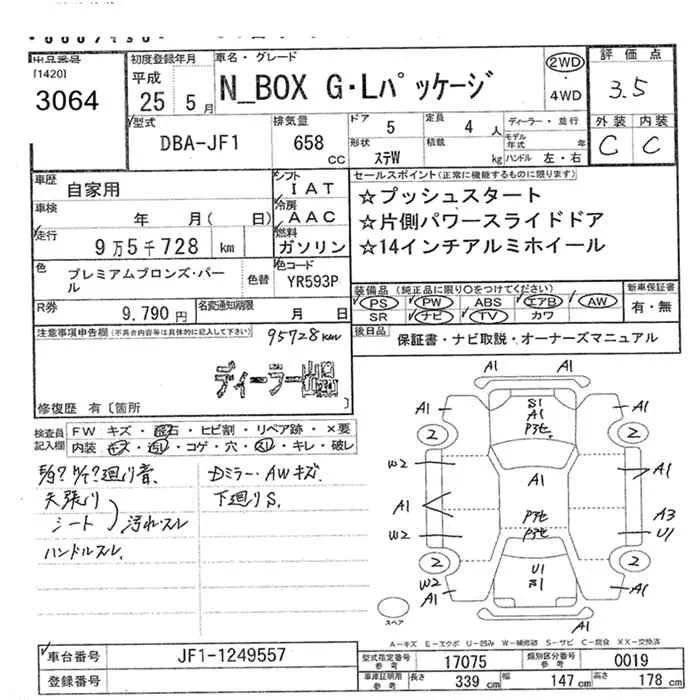 出品番号
[1420]
3064
初度登録年月
平成
25 5月
車名・グレード
N_BOX G・Lパッケージ
2WD
4WD
評価点
3.5
型式
DBA-JF1
排気量
658 cc
ドア
5
形状
ステW
定員
4 人
積載
kg
ディーラー・並行
モデル年式 年
ハンドル 左・右
外装 内装
C C
車歴
自家用
車検
年 月( 日)
走行
9万5千728 km
シフト
IAT
冷房
AAC
燃料
ガソリン
セールスポイント(正常に機能するものに限ります)
☆プッシュスタート
☆片側パワースライドドア
☆14インチアルミホイール
色
プレミアムブロンズ・パール
色替
色コード
YR593P
R券
9,790 円
名変通知期限
月 日
装備品 (純正品に限り○をつけてください)
PS PW ABS エアB AW
SR ナビ TV カワ
新車保証書
有・無
後日品
保証書・ナビ取説・オーナーズマニュアル
注意事項申告欄(不具合内容等は具体的に記入して下さい)
95728km
ディーラー出品
修復歴 有〔箇所 〕
検査員記入欄
FW キズ・飛石・ヒビ割・リペア跡・×要
内装 キズ・汚レ・コゲ・穴・スレ・キレ・破レ
廻り音
天張り
シート
汚れスレ
ハンドルスレ
Dミラー・AWキズ
下廻りS
A1 A1
A1 S1 A1 A1
2 2
W2 A1 A1
A1
W2 A3
U1
2 2
W2 U1
A1 A1
A1 A1
スペア
A-キズ E-エクボ U-凹み W-補修跡 S-サビ C-腐食 XX-交換済
車台番号
JF1-1249557
登録番号
型式指定番号 参考
17075
類別区分番号 参考
0019
車庫証明用 参考
長さ 339 cm 幅 147 cm 高さ 178 cm